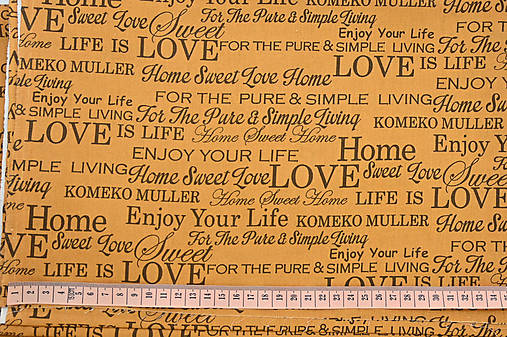 Enjoy Your Life Home KOMEKO MULLER Home
VE Sweet Love Sweet For The Pure & Simple Living
Enjoy Your Life
Home LIFE IS LOVE FOR THE PURE & SIMPLE LIVING For The
KOMEKO MULLER Home Sweet Love Home LOVE IS LIFE Home
Simple Living ENJOY YOUR
Enjoy Your Life FOR THE PURE & SIMPLE LIVING Home
& SIMPLE LIVING For The Pure & Simple Living KOMEKO MULLER
LOVE IS LIFE Home Sweet Home Home Enjoy Your
ENJOY YOUR LIFE
SIMPLE LIVING Home Sweet Love LOVE Sweet Love Sweet
Living KOMEKO MULLER Home Sweet Home LIFE IS LOVE
Home Enjoy Your Life KOMEKO MULLER Home Sweet
VE Sweet Love Sweet For The Pure & Simple Living FOR THE
Enjoy Your Life
Home LIFE IS LOVE FOR THE PURE & SIMPLE LIVING For The
KOMEKO MULLER Home Sweet Love Home LOVE IS LIFE
2 3 4 5 6 7 8 9 10 11 12 13 14 15 16 17 18 19 20 21 22 23 24 25 26 27 28 29 30 31 32 33 34
Home LIFE IS LOVE FOR THE PURE & SIMPLE LIVING For The